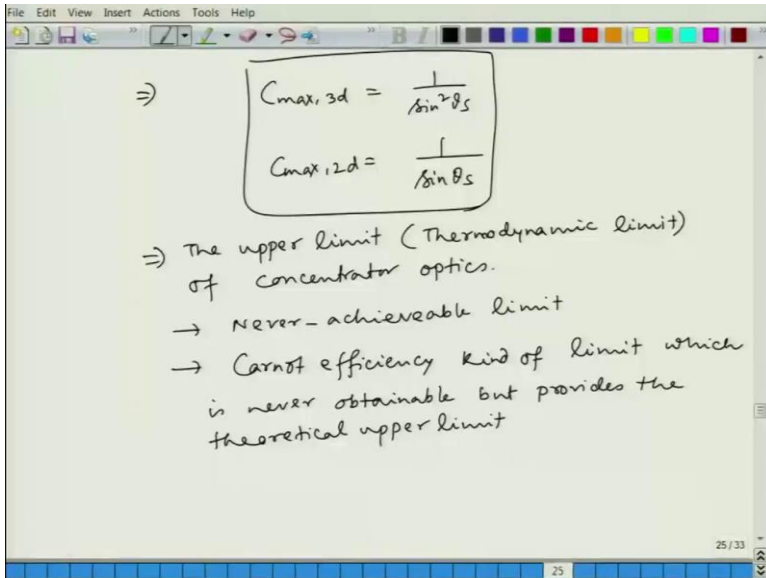 File Edit View Insert Actions Tools Help
B I
⇒ Cmax, 3d = 1/sin²θs
Cmax, 2d = 1/sin θs
⇒ The upper limit (Thermodynamic limit)
of concentrator optics.
→ Never-achieveable limit
→ Carnot efficiency kind of limit which
is never obtainable but provides the
theoretical upper limit
25/33
25